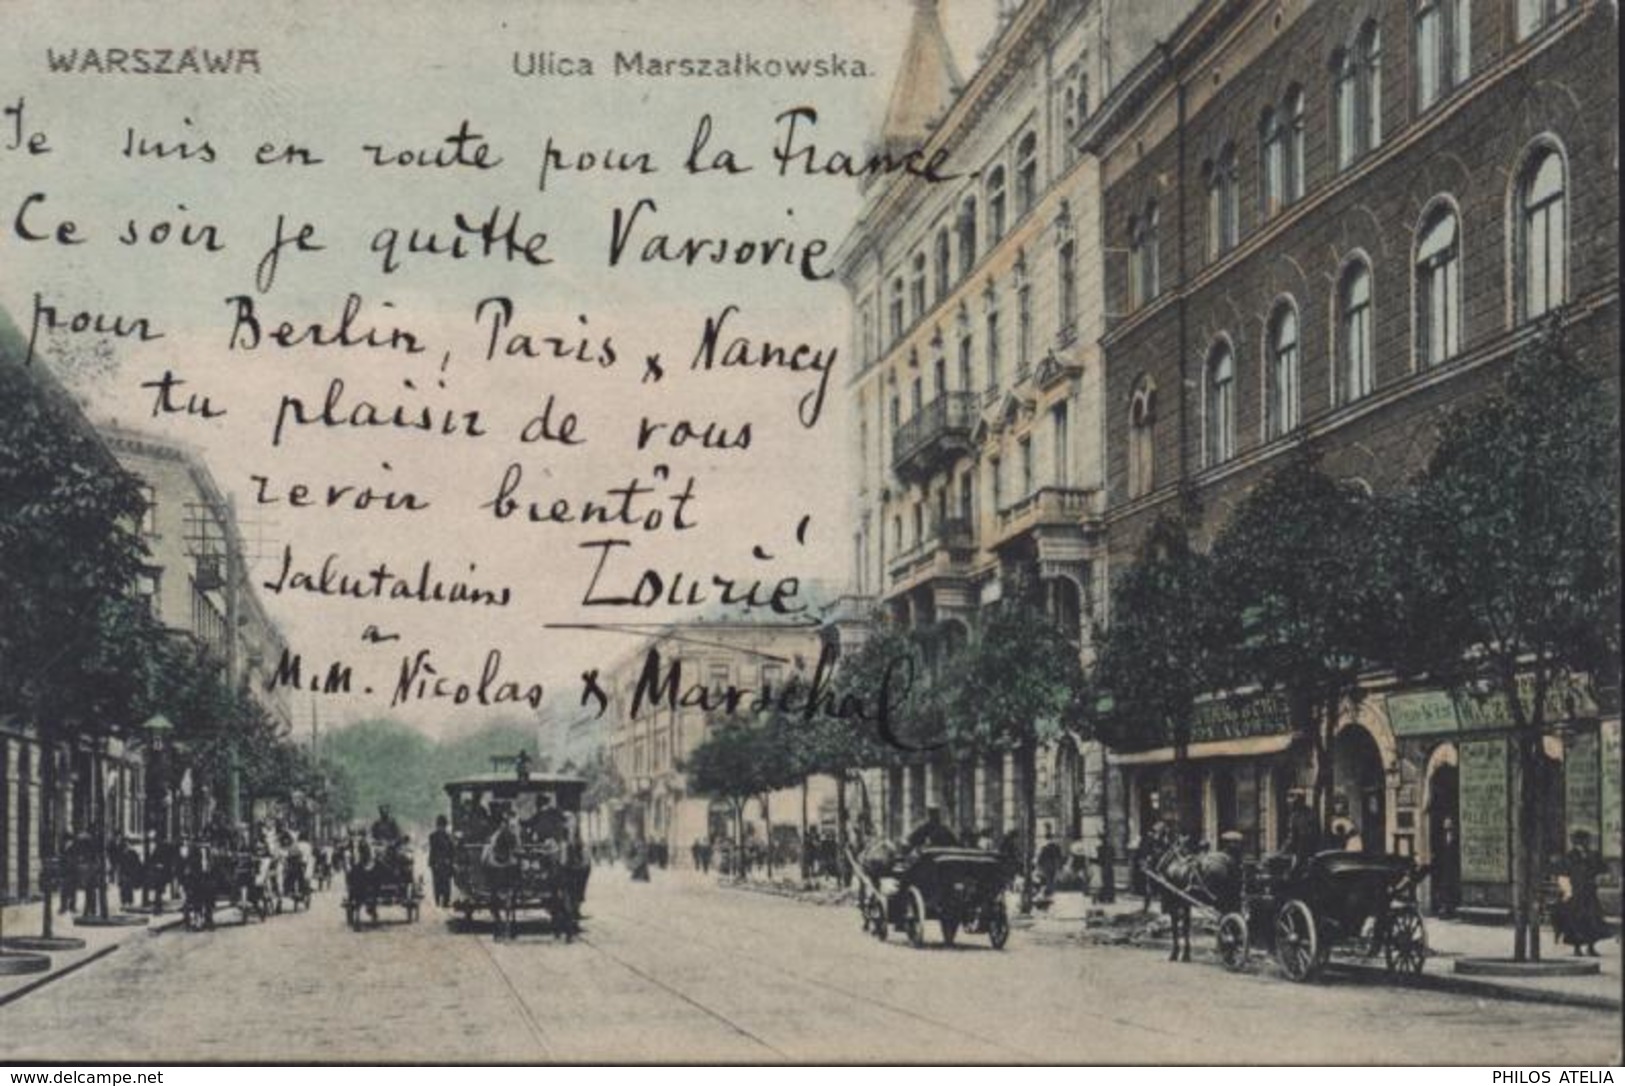 WARSZAWA Ulica Marszałkowska.
Je suis en route pour la France.
Ce soir je quitte Varsovie
pour Berlin, Paris & Nancy
Au plaisir de vous
revoir bientôt
Salutations Lourié
a
M.M. Nicolas & Marschal
www.delcampe.net PHILOS ATELIA